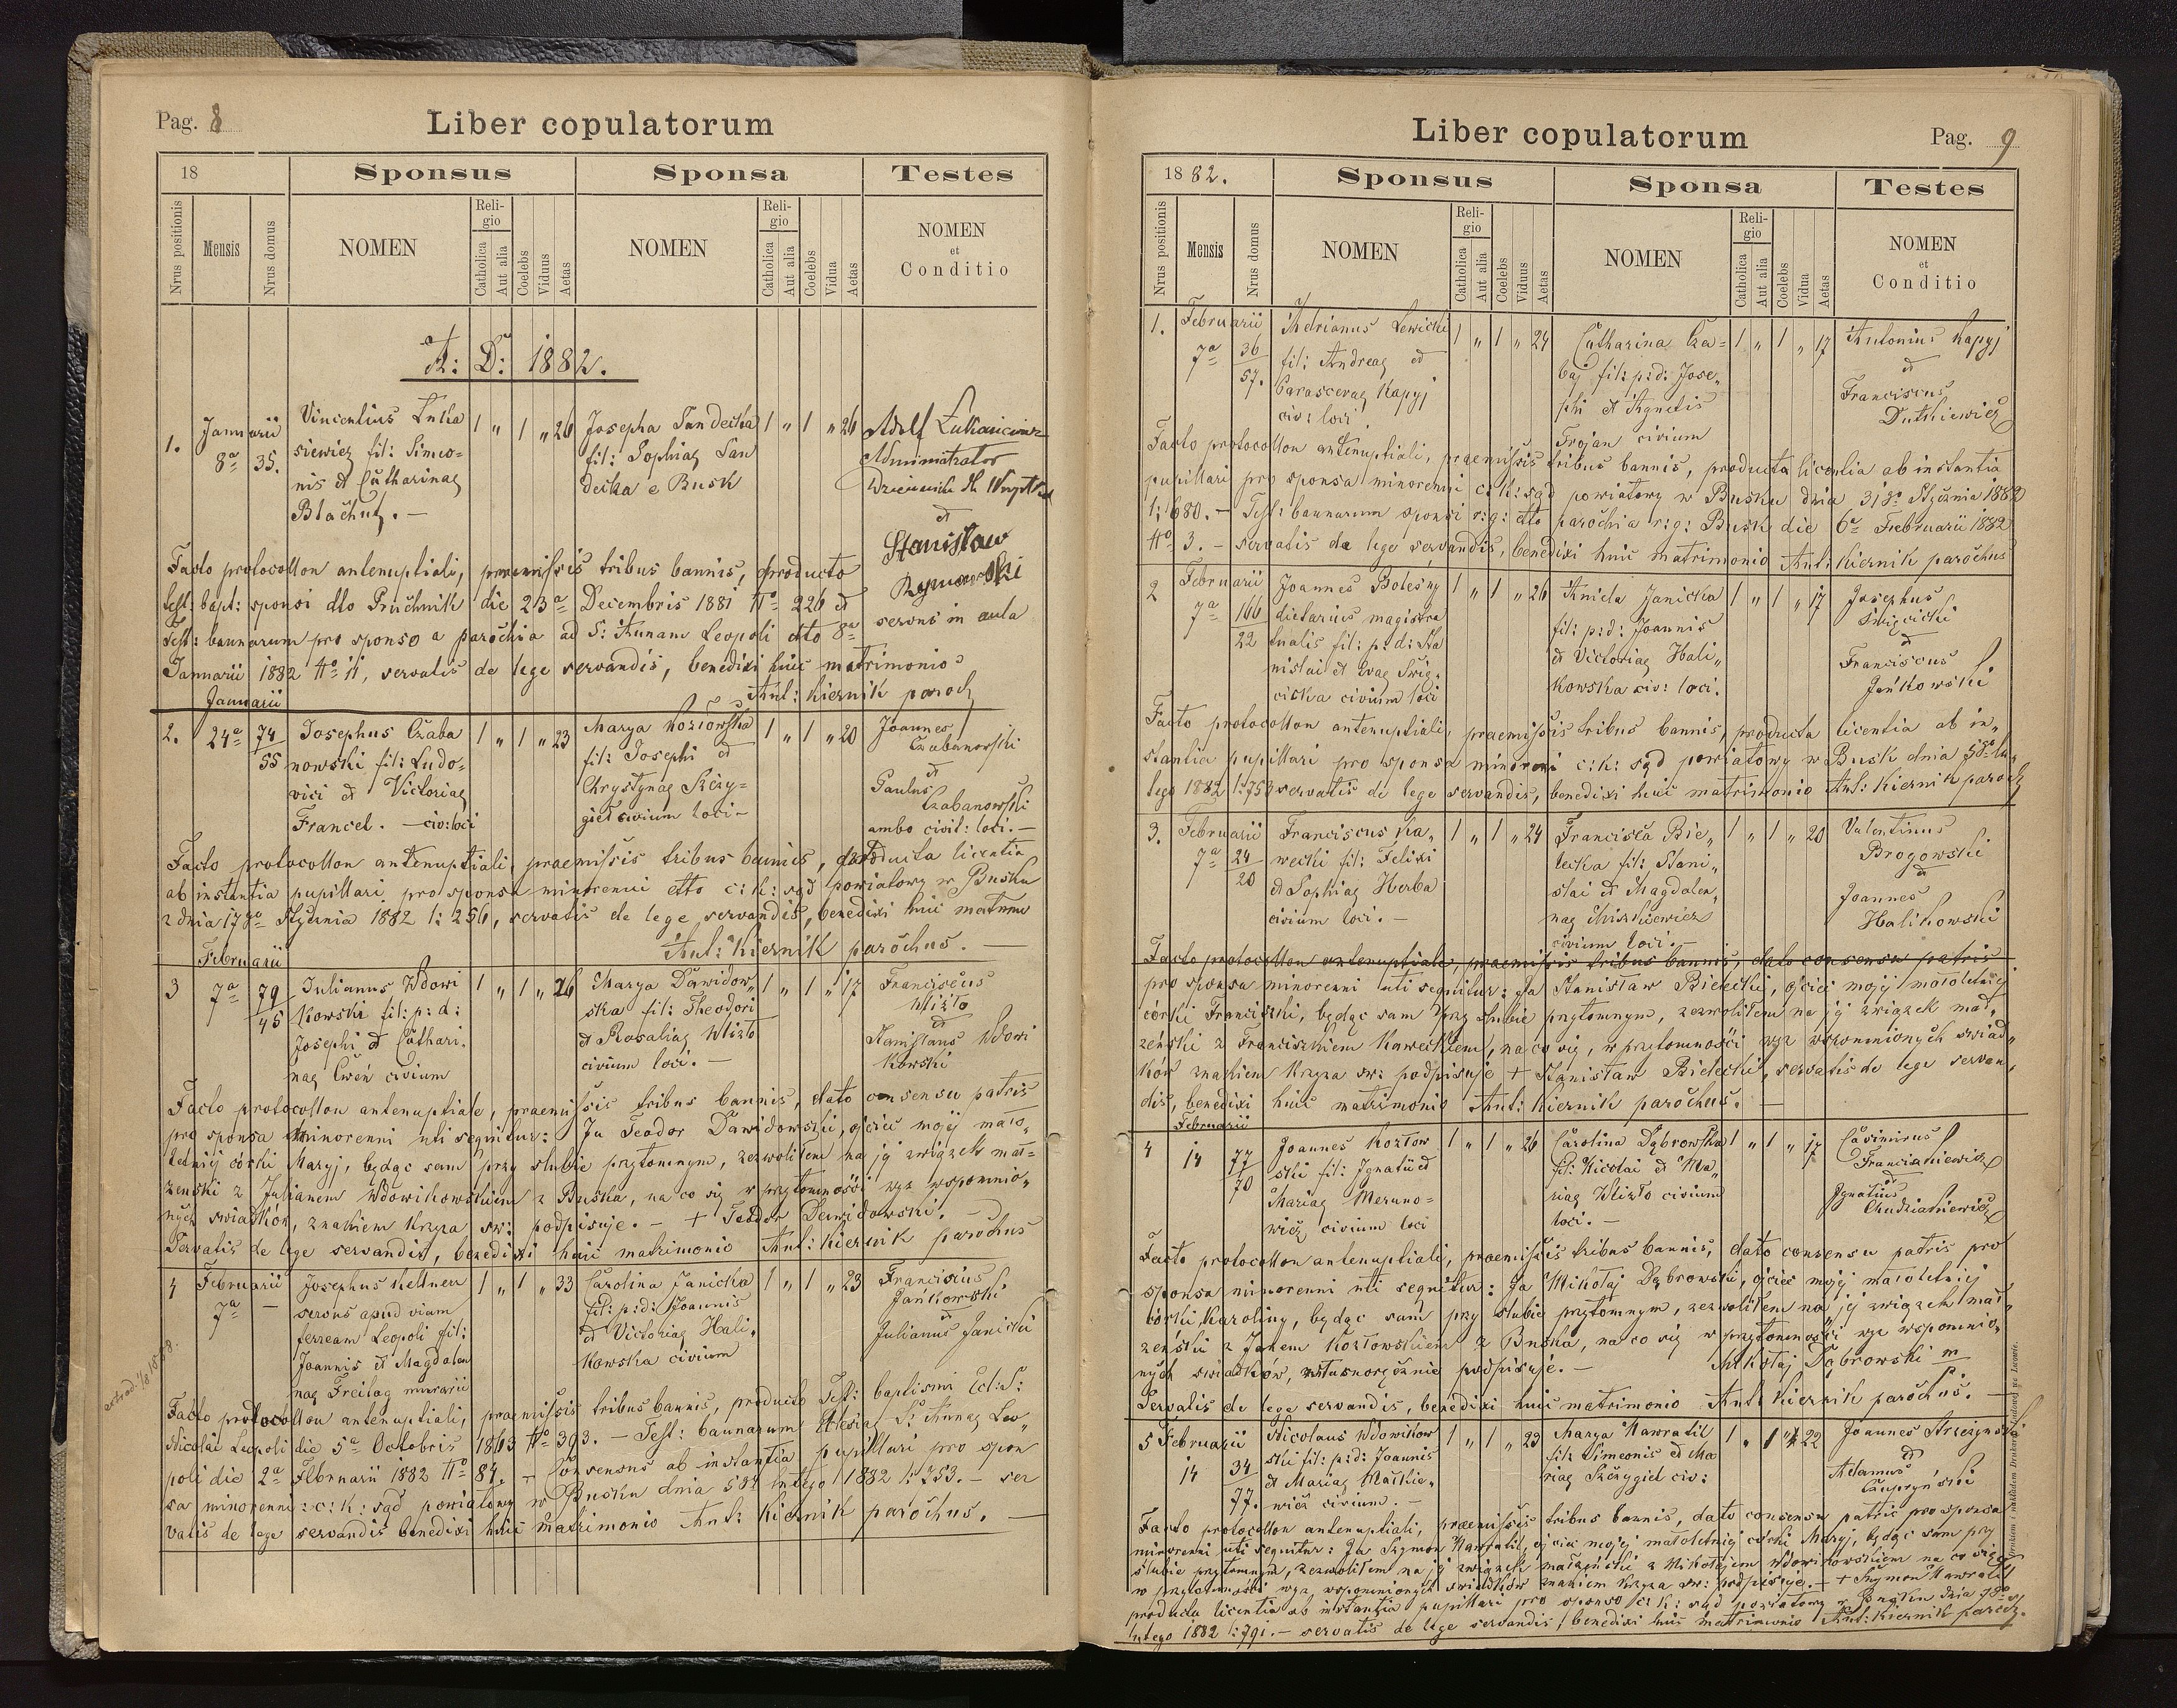 Pag. 8
Liber copulatorum
18 Sponsus Sponsa Testes
Nrus positionis Mensis Nrus domus NOMEN Religio Catholica Aut alia Coelebs Viduus Aetas NOMEN Religio Catholica Aut alia Coelebs Vidua Aetas NOMEN et Conditio
A: D: 1882.
1. Januarii 8a 35.
Vincentius Luka
siewicz fil: Simeo=
nis et Catharinae
Błachut. —
1 " 1 " 26
Josepha Sandecka
fil: Sophiae San
decka e Busk
1 " 1 " 26
Adolf Łukasiewicz
Administrator
et
Stanisław
servus in aula
Facto protocollon antenuptiali, praemissis tribus bannis, producto
test: bapt: sponsi dto Pruchnik die 23a Decembris 1881 No 226 et
Test: bannarum pro sponso a parochia ad S: Annam Leopoli dto 8a
Januarii 1882 No 11, servatis de lege servandis, benedixi huic matrimonio
Ant: Kiernik paroch
Januarii
2. 24a 74 55
Josephus Czaba
nowski fil: Ludo=
vici et Victoriae
Francel. — civ: loci
1 " 1 " 23
Marya Kozłowska
fil: Josephi et
Chrystynae Szczy=
gieł civium loci —
1 " 1 " 20
Joannes
Czabanowski
et
Paulus
Czabanowski
ambo civit: loci. —
Facto protocollon antenuptiali, praemissis tribus bannis, producta licentia
ab instantia pupillari pro sponsa minorenni dtto c: k: sąd powiatowy w Busku
z dnia 17go Stycznia 1882 l: 256, servatis de lege servandis, benedixi huic matrim
Ant: Kiernik parochus. —
Februarii
3 7a 79 45
Julianus Wdowi
kowski fil: p: d:
Josephi et Cathari.
nae Cweń civium
1 " 1 " 26
Marya Dawidow„
ska fil: Theodori
et Rosaliae Wlizło
civium loci. —
1 " 1 " 17
Franciscus
Wlizło
et
Stanislaus Wdowi
kowski
Facto protocollon antenuptiale, praemissis tribus bannis, dato consensu patris
pro sponsa minorenni uti sequitur: Ja Teodor Dawidowski, ojciec mojéj mało„
letniéj córki Maryi, będąc sam przy ślubie przytomnym, zezwoliłem na jéj związek mał=
żeński z Julianem Wdowikowskiem z Buska, na co się w przytomności wyż wspomnio„
nych świadków, znakiem krzyża św: podpisuje. — + Teodor Dawidowski.
Servatis de lege servandis, benedixi huic matrimonio Ant: Kiernik parochus
4 Februarii 7a —
Josephus Kellner
servus apud viam
ferream Leopoli fil:
Joannis et Magdalen
nae Freitag murarii
1 " 1 " 33
Carolina Janicka
fil: p: d: Joannis
et Victoriae Hali„
kowska civium
1 " 1 " 23
Franciscus
Jańkowski
et
Julianus Janicki
Facto protocollon antenuptiali, praemissis tribus bannis, producto Test: baptismi Ecl: S:
Nicolai Leopoli die 5a Octobris 1863 No 393. — Test: bannarum Eclesia S: Annae Leo„
poli die 2a Februarii 1882 No 84. — Consensus ab instantia pupillari pro spon
sa minorenni: c: k: sąd powiatowy w Busku dnia 5go lutego 1882 l: 753. — ser
vatis de lege servandis benedixi huic matrimonio Ant: Kiernik parochus. —
Liber copulatorum
Pag. 9
1882. Sponsus Sponsa Testes
Nrus positionis Mensis Nrus domus NOMEN Religio Catholica Aut alia Coelebs Viduus Aetas NOMEN Religio Catholica Aut alia Coelebs Vidua Aetas NOMEN et Conditio
1. Februarii 7a 36 57.
Adrianus Lewicki
fil: Andreae et
Parascevae Kapyj
civ: loci
1 " 1 " 24
Catharina Cza=
baj fil: p: d: Jose„
phi et Agnetis
Trojan civium
1 " 1 " 17
Antonius Kapyj
et
Franciscus
Dutkiewicz
Facto protocollon antenuptiali, praemissis tribus bannis, producta licentia ab instantia
pupillari pro sponsa minorenni c: k: sąd powiatowy w Busku dnia 31go Stycznia 1882
l: 680. — Test: bannarum sponsi r: g: dtto parochia r: g: Busk die 6a Februarii 1882
No 3. — servatis de lege servandis, benedixi huic matrimonio Ant: Kiernik parochus
2 Februarii 7a 166 22
Joannes Bolesny
dietarius magistra
tualis fil: p: d: Sta
nislai et Evae Świę„
cicka civium loci
1 " 1 " 26
Aniela Janicka
fil: p: d: Joannis
et Victoriae Hali„
kowska civ: loci.
1 " 1 " 17
Josephus
Święcicki
et
Franciscus
Jańkowski
Facto protocollon antenuptiali, praemissis tribus bannis, producta licentia ab in„
stantia pupillari pro sponsa minorenni c: k: sąd powiatowy w Busk dnia 5go lu„
tego 1882 l: 750 servatis de lege servandis, benedixi huic matrimonio Ant: Kiernik paroch
3. Februarii 7a 24 20
Franciscus Ka„
wecki fil: Felixi
et Sophiae Herba
civium loci. —
1 " 1 " 24
Francisca Bie„
lecka fil: Stani„
slai et Magdalen„
nae Miszkiewicz
civium loci. —
1 " 1 " 20
Valentinus
Brogowski
et
Joannes
Halikowski
Facto protocollon antenuptiale, praemissis tribus bannis, dato consensu patris
pro sponsa minorenni uti sequitur: Ja Stanisław Bielecki, ojciec mojéj małoletniéj
córki Franciszki, będąc sam przy ślubie przytomnym, zezwoliłem na jéj związek mał„
żeński z Franciszkiem Kaweckiem, na co się, w przytomności wyż wspomnionych świad„
ków znakiem krzyża św: podpisuje + Stanisław Bielecki, servatis de lege servan„
dis, benedixi huic matrimonio Ant: Kiernik parochus. —
Februarii
4 14 77 70
Joannes Kozłow
ski fil: Ignatii et
Mariae Meruno=
wicz civium loci
1 " 1 " 26
Carolina Dąbrowska
fil: Nicolai et Ma„
riae Wlizło civium
loci. —
1 " 1 " 17
Casimirus
et
Ignatius
Chudziakiewicz
Facto protocollon antenuptiali, praemissis tribus bannis, dato consensu patris pro
sponsa minorenni uti sequitur: Ja Mikołaj Dąbrowski, ojciec mojéj małoletniéj
córki Karoliny, będąc sam przy ślubie przytomnym, zezwoliłem na jéj związek mał„
żeński z Janem Kozłowskiem z Buska, na co się w przytomności wyż wspomnio„
nych świadków, własnoręcznie podpisuje. — Mikołaj Dąbrowski m
Servatis de lege servandis, benedixi huic matrimonio Ant: Kiernik parochus. —
5 Februarii 14 34 77.
Nicolaus Wdowikow
ski fil: p: d: Joannis
et Mariae Maćkie„
wicz civium. —
1 " 1 " 23
Marya Nawratil
fil: Simeonis et Ma
riae Szczygieł civ:
1 " 1 " 22
Joannes
et
Adamus
Facto protocollon antenuptiali, praemissis tribus bannis, dato consensu patris pro sponsa
minorenni uti sequitur: Ja Szymon Nawratil, ojciec mojéj małoletniéj córki Maryi, będąc sam przy
ślubie przytomnym, zezwoliłem na jéj związek małżeński z Mikołajem Wdowikowskiem na co się
w przytomności wyż wspomnionych świadków znakiem krzyża św: podpisuje. — + Szymon Nawratil
producta licentia ab instantia pupillari pro sponso c: k: sąd powiatowy w Busku dnia 7go
lutego 1882 l: 791. — servatis de lege servandis, benedixi huic matrimonio Ant: Kiernik paroch.